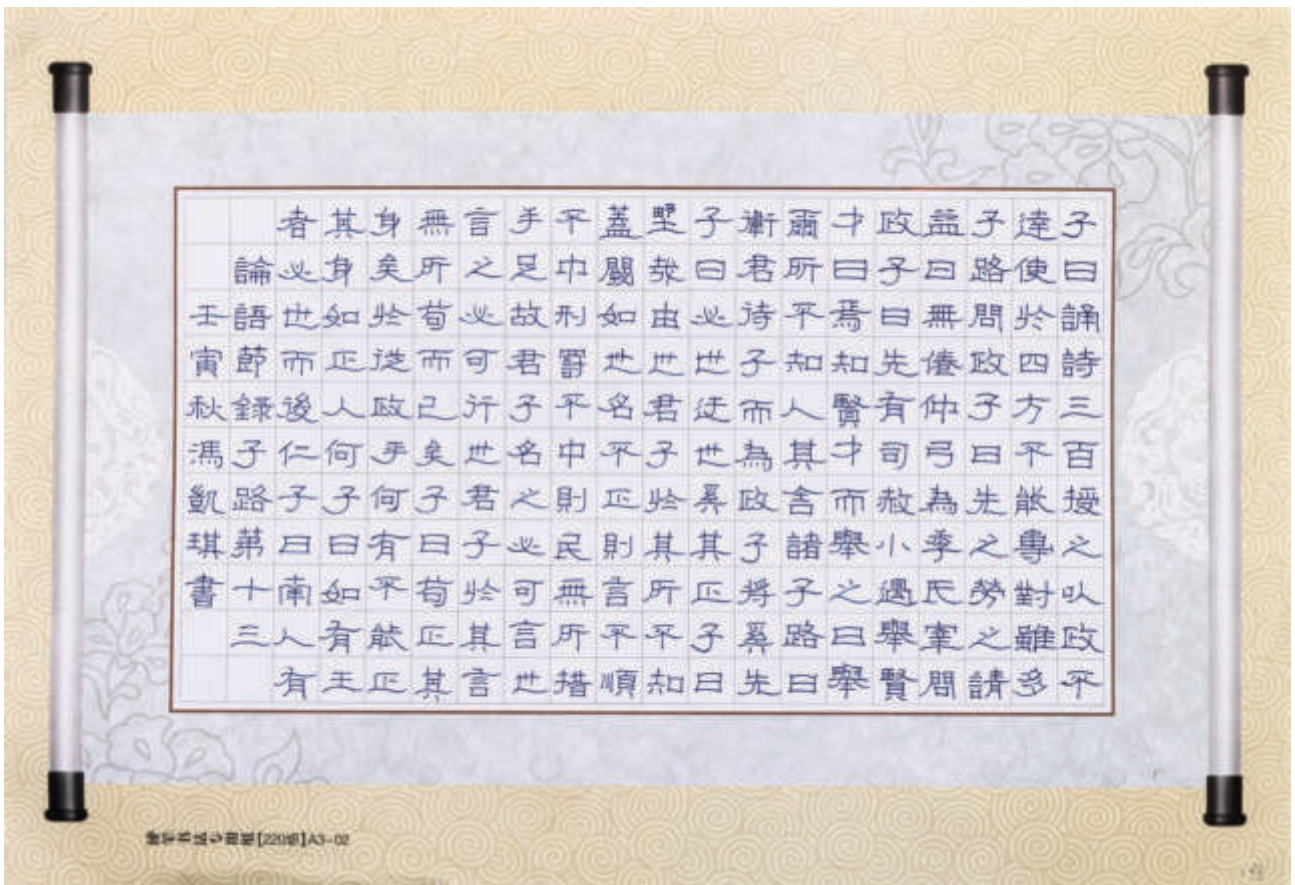 子曰誦詩三百授之以政不
達使於四方不能專對雖多
子路問政子曰先之勞之請
益曰無倦仲弓為季氏宰問
政子曰先有司赦小過舉賢
才曰焉知賢才而舉之曰舉
爾所不知人其舍諸子路曰
衛君待子而為政子將奚先
子曰必也迂也奚其正子曰
野哉由也君子於其所不知
蓋闕如也名不正則言不順
不中刑罰不中則民無所措
手足故君子名之必可言也
言之必可行也君子於其言
無所苟而已矣子曰苟正其
身矣於從政乎何有不能正
其身如正人何子曰如有王
者必世而後仁子曰南人有
論語節錄子路第十三
壬寅秋馮凱琪書
硬笔书法专用纸[220格]A3-02